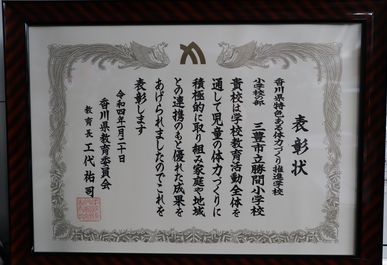 表彰状
香川県特色ある体力づくり推進学校
小学校の部
三豊市立勝間小学校
貴校は学校教育活動全体を
通して児童の体力づくりに
積極的に取り組み家庭や地域
との連携のもと優れた成果を
あげられましたのでこれを
表彰します
令和四年一月二十日
香川県教育委員会
教育長 工代祐司